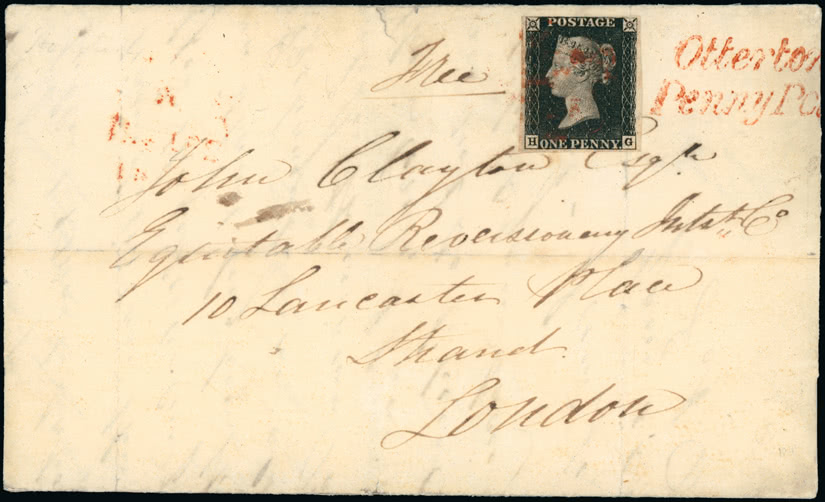 POSTAGE
H ONE PENNY G
Otterton
Penny Po
Free
John Clayton Esqre
Equitable Reversionary Intst. Co
10 Lancaster Place
Strand
London